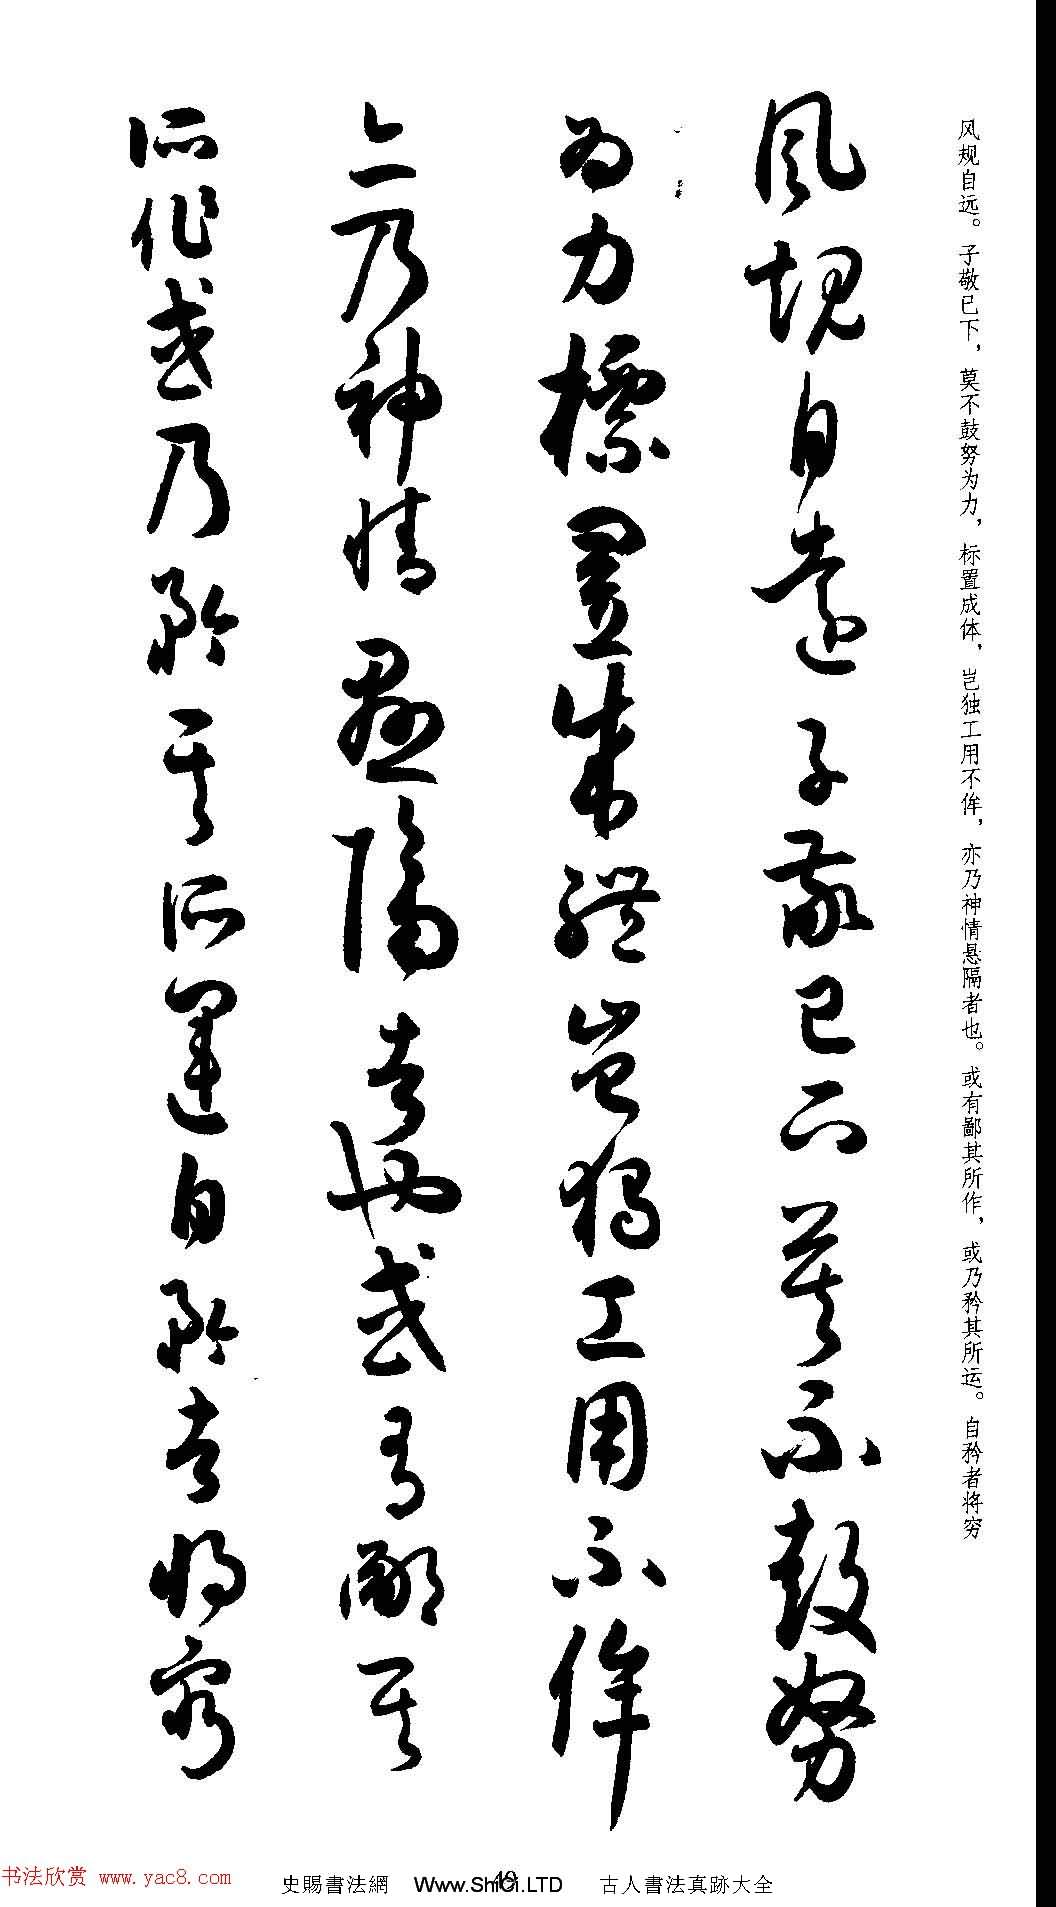 风规自远。子敬已下，莫不鼓努为力，标置成体，岂独工用不侔，亦乃神情悬隔者也。或有鄙其所作，或乃矜其所运。自矜者将穷
風規自遠子敬已下莫不鼓努
為力標置成體豈獨工用不侔
亦乃神情懸隔者也或有鄙其
所作或乃矜其所運自矜者將窮
书法欣赏 www.yac8.com
史賜書法網 Www.ShiCi.LTD 古人書法真跡大全